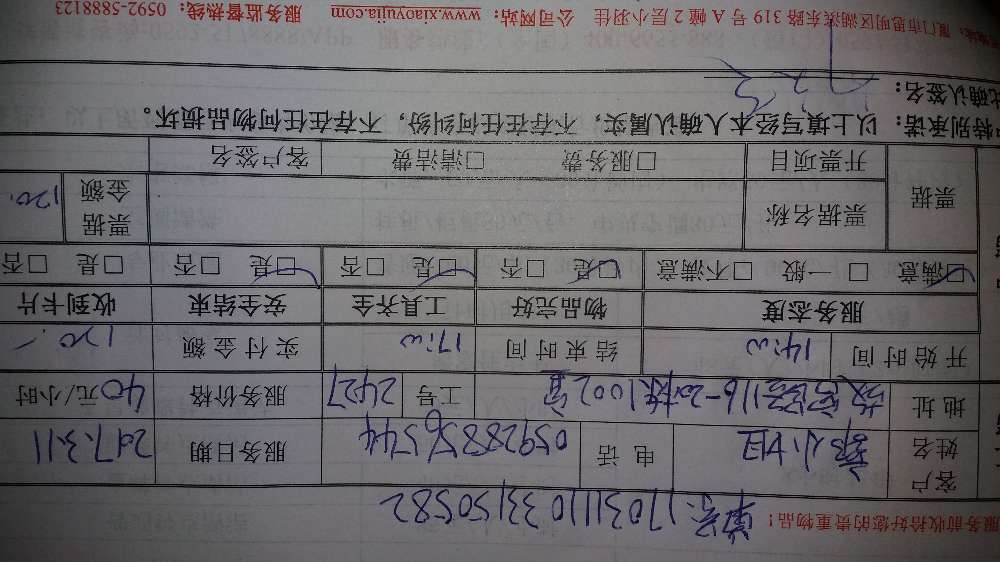 服务前收拾好您的贵重物品！
单号：170311103350582
客户姓名 郭小姐 电话 05928856544 服务日期 2017.3.11
地址 1116-20栋1002室 工号 2427 服务价格 40元/小时
开始时间 14:00 结束时间 17:00 实付金额 120.-
服务态度 物品完好 工具齐全 安全结束 收到卡片
☑满意 □一般 □不满意 ☑是 □否 ☑是 □否 ☑是 □否 □是 □否
票据 票据名称 票据金额 120.
开票项目 □服务费 □清洁费 客户签名
特别承诺：以上填写经本人确认属实，不存在任何纠纷，不存在任何物品损坏。
此确认签名：
厦门市思明区湖滨东路 319 号 A 幢 2 层小羽佳 公司网站：www.xiaoyujia.com 服务监督热线：0592-5888123